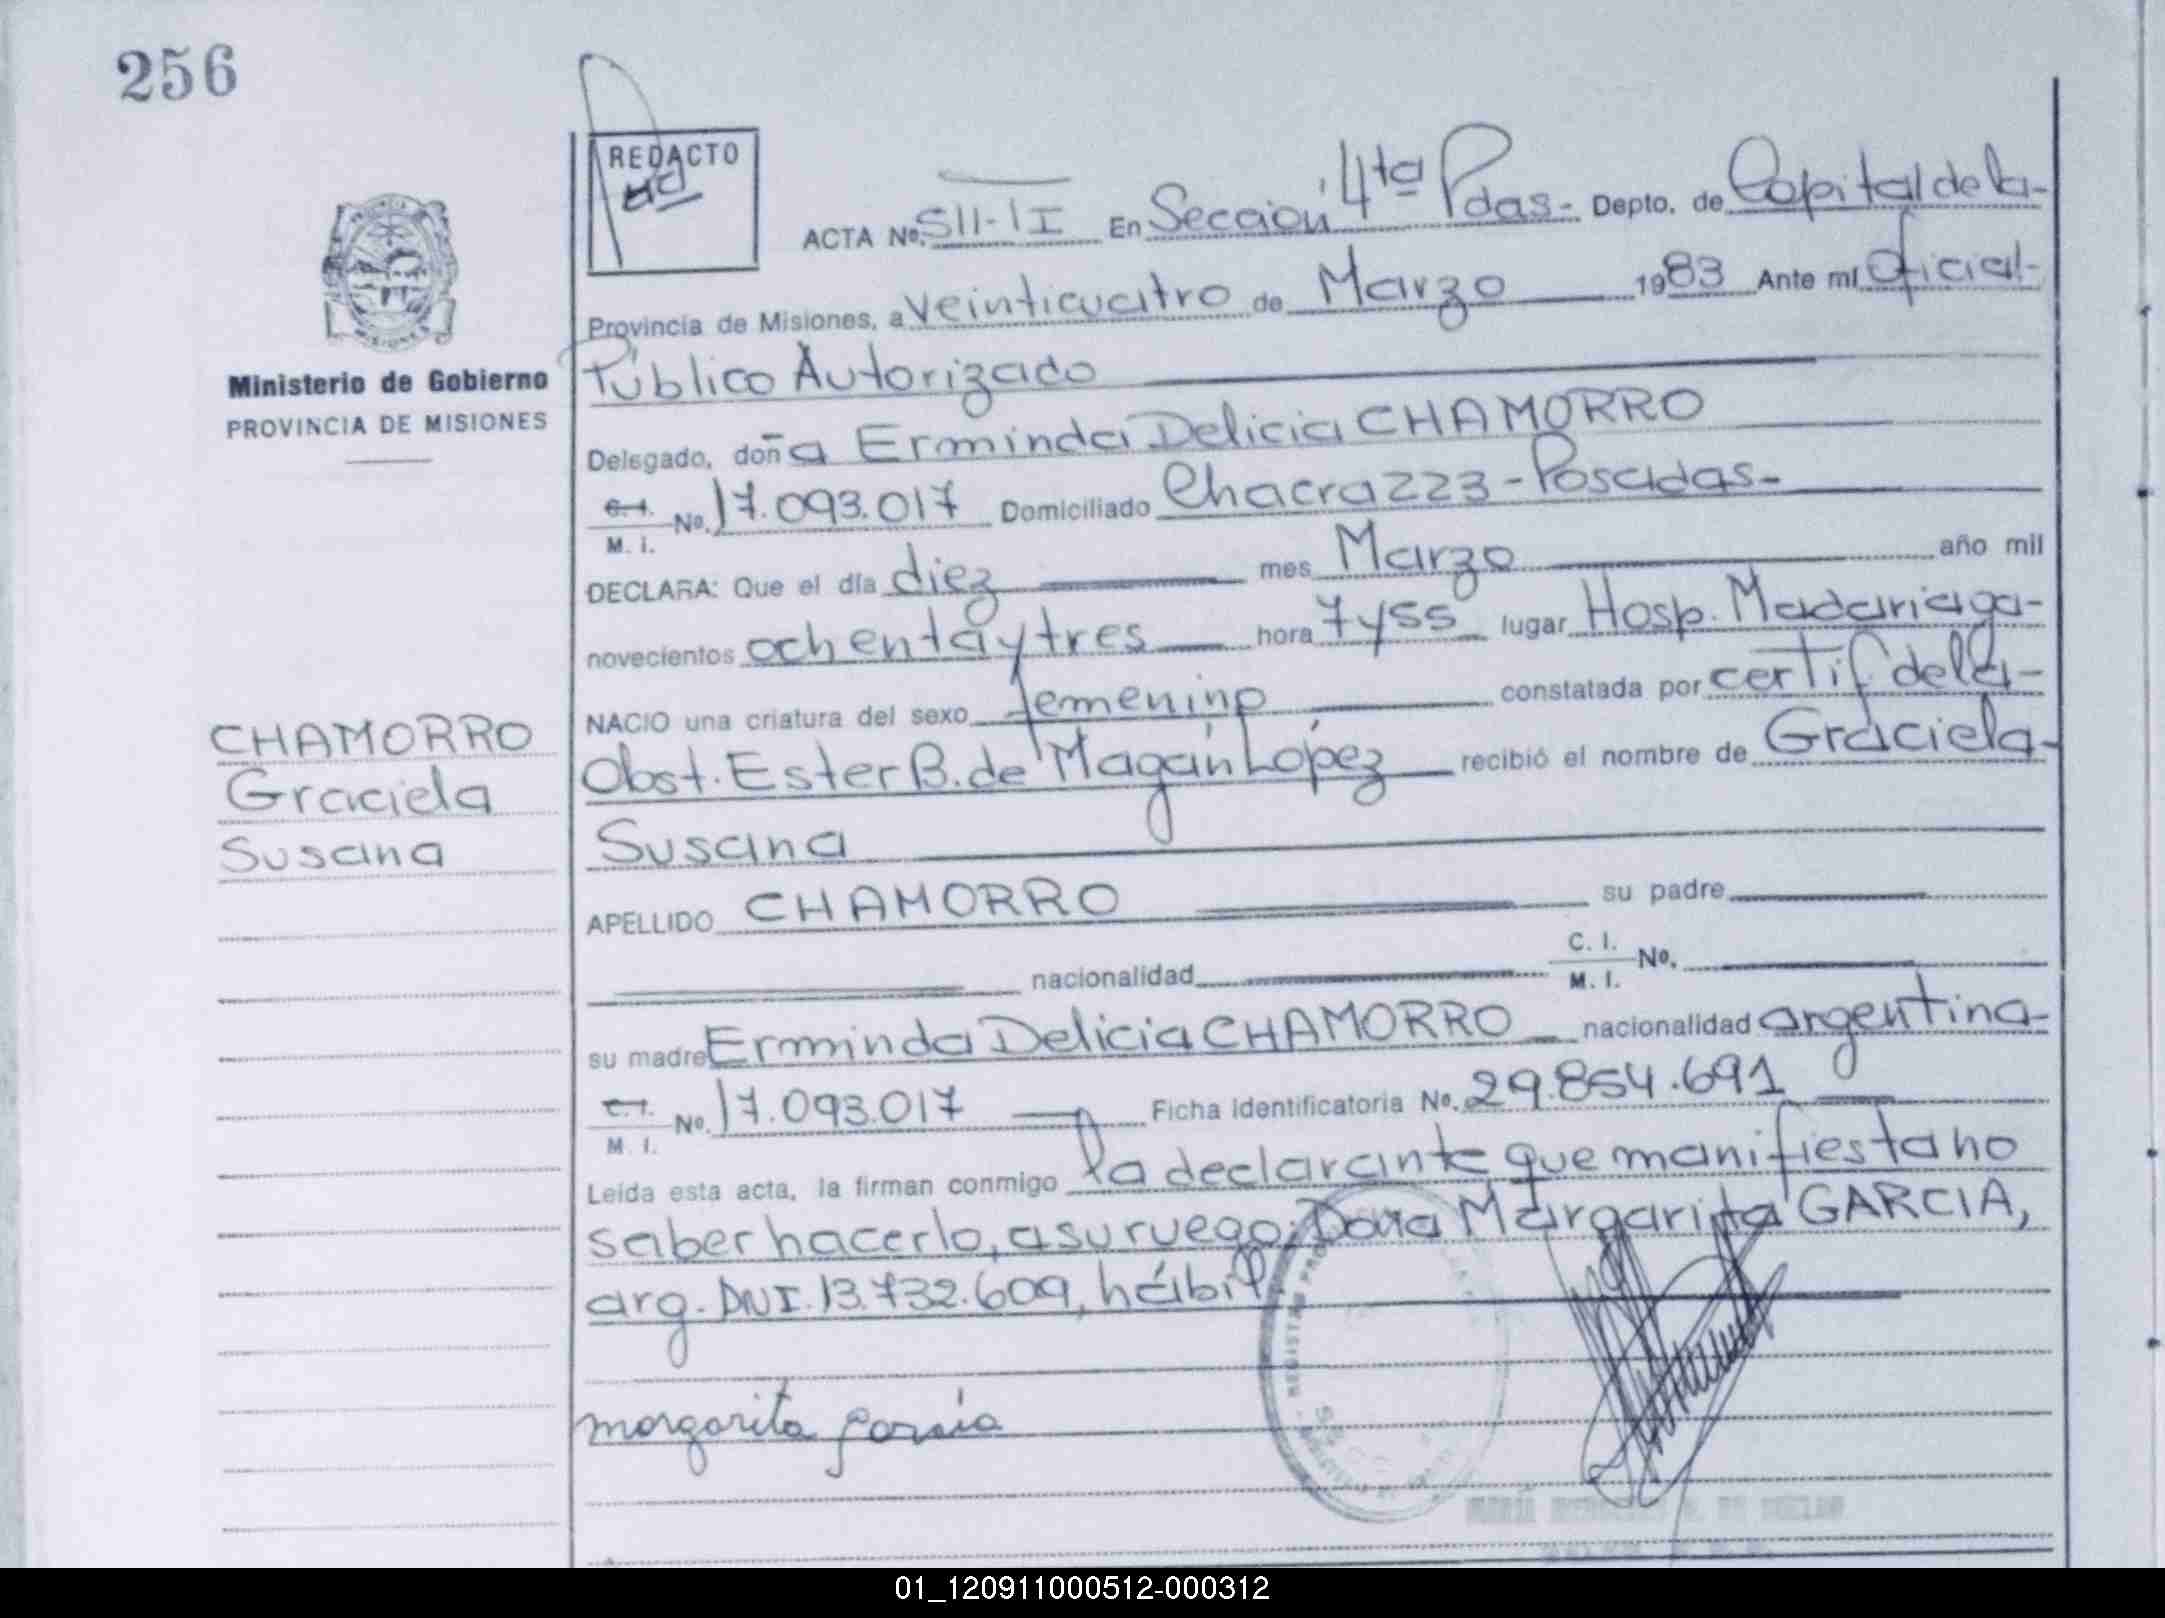 256
REDACTO
ACTA No. 511-II En Sección 4ta Pdas- Depto. de Capital de la-
Provincia de Misiones, a veinticuatro de Marzo 1983 Ante mí Oficial-
Ministerio de Gobierno
PROVINCIA DE MISIONES
Público Autorizado
Delegado, doña Erminda Delicia CHAMORRO
C. I.
M. I. No. 17.093.017 Domiciliado Chacra 223-Posadas-
DECLARA: Que el día diez mes Marzo año mil
novecientos ochenta y tres hora 7 y 55 lugar Hosp. Madariaga-
NACIO una criatura del sexo femenino constatada por certif de la-
Obst. Ester B. de Magán López recibió el nombre de Graciela-
Susana
CHAMORRO
Graciela
Susana
APELLIDO CHAMORRO su padre
nacionalidad C. I.
M. I. No.
su madre Erminda Delicia CHAMORRO nacionalidad argentina-
C. I.
M. I. No. 17.093.017 Ficha Identificatoria No. 29.854.691
Leída esta acta, la firman conmigo la declarante que manifiesta no
saber hacerlo, a su ruego: Doña Margarita GARCIA,
arg. DNI. 13.732.609, hábil
margarita garcia
01_120911000512-000312